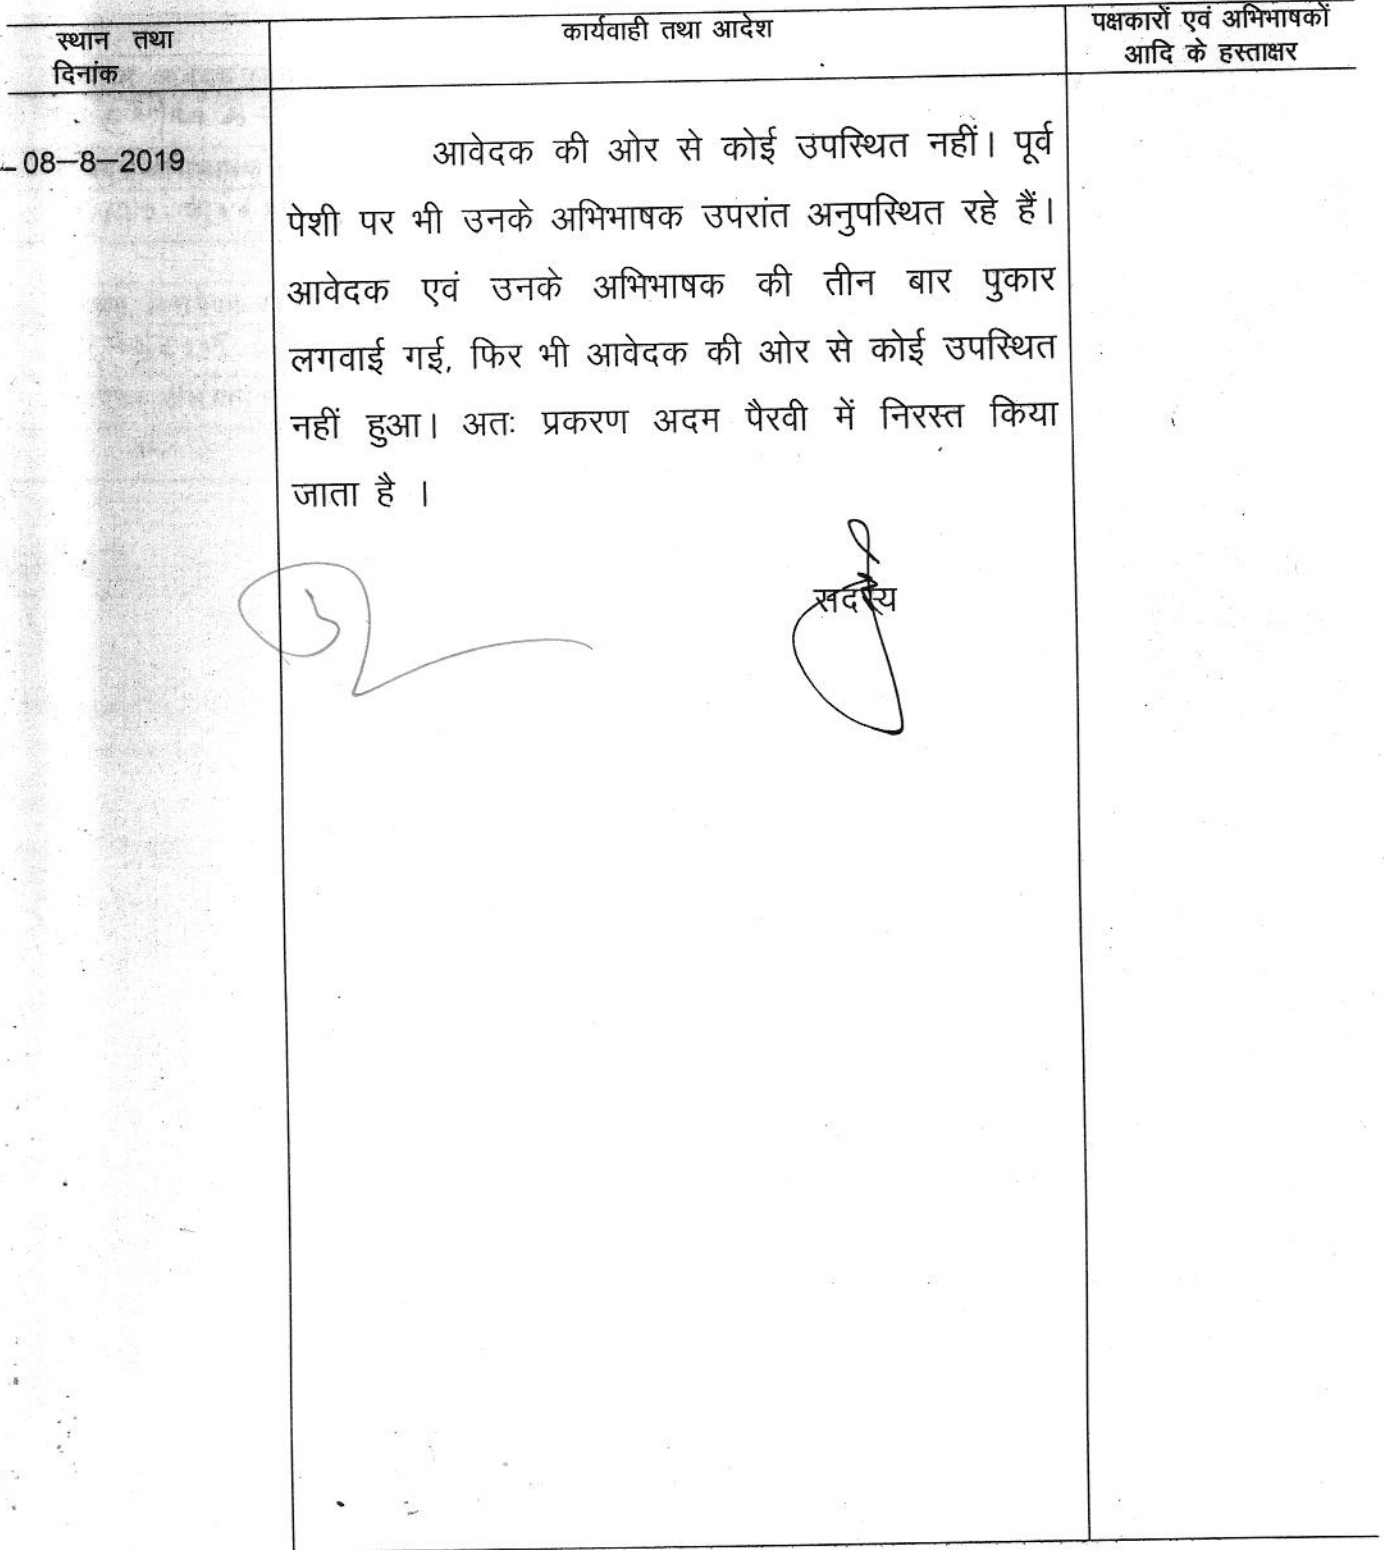 स्थान तथा
दिनांक
कार्यवाही तथा आदेश
पक्षकारों एवं अभिभाषकों
आदि के हस्ताक्षर
08-8-2019
आवेदक की ओर से कोई उपस्थित नहीं। पूर्व
पेशी पर भी उनके अभिभाषक उपरांत अनुपस्थित रहे हैं।
आवेदक एवं उनके अभिभाषक की तीन बार पुकार
लगवाई गई, फिर भी आवेदक की ओर से कोई उपस्थित
नहीं हुआ। अतः प्रकरण अदम पैरवी में निरस्त किया
जाता है ।
सदस्य